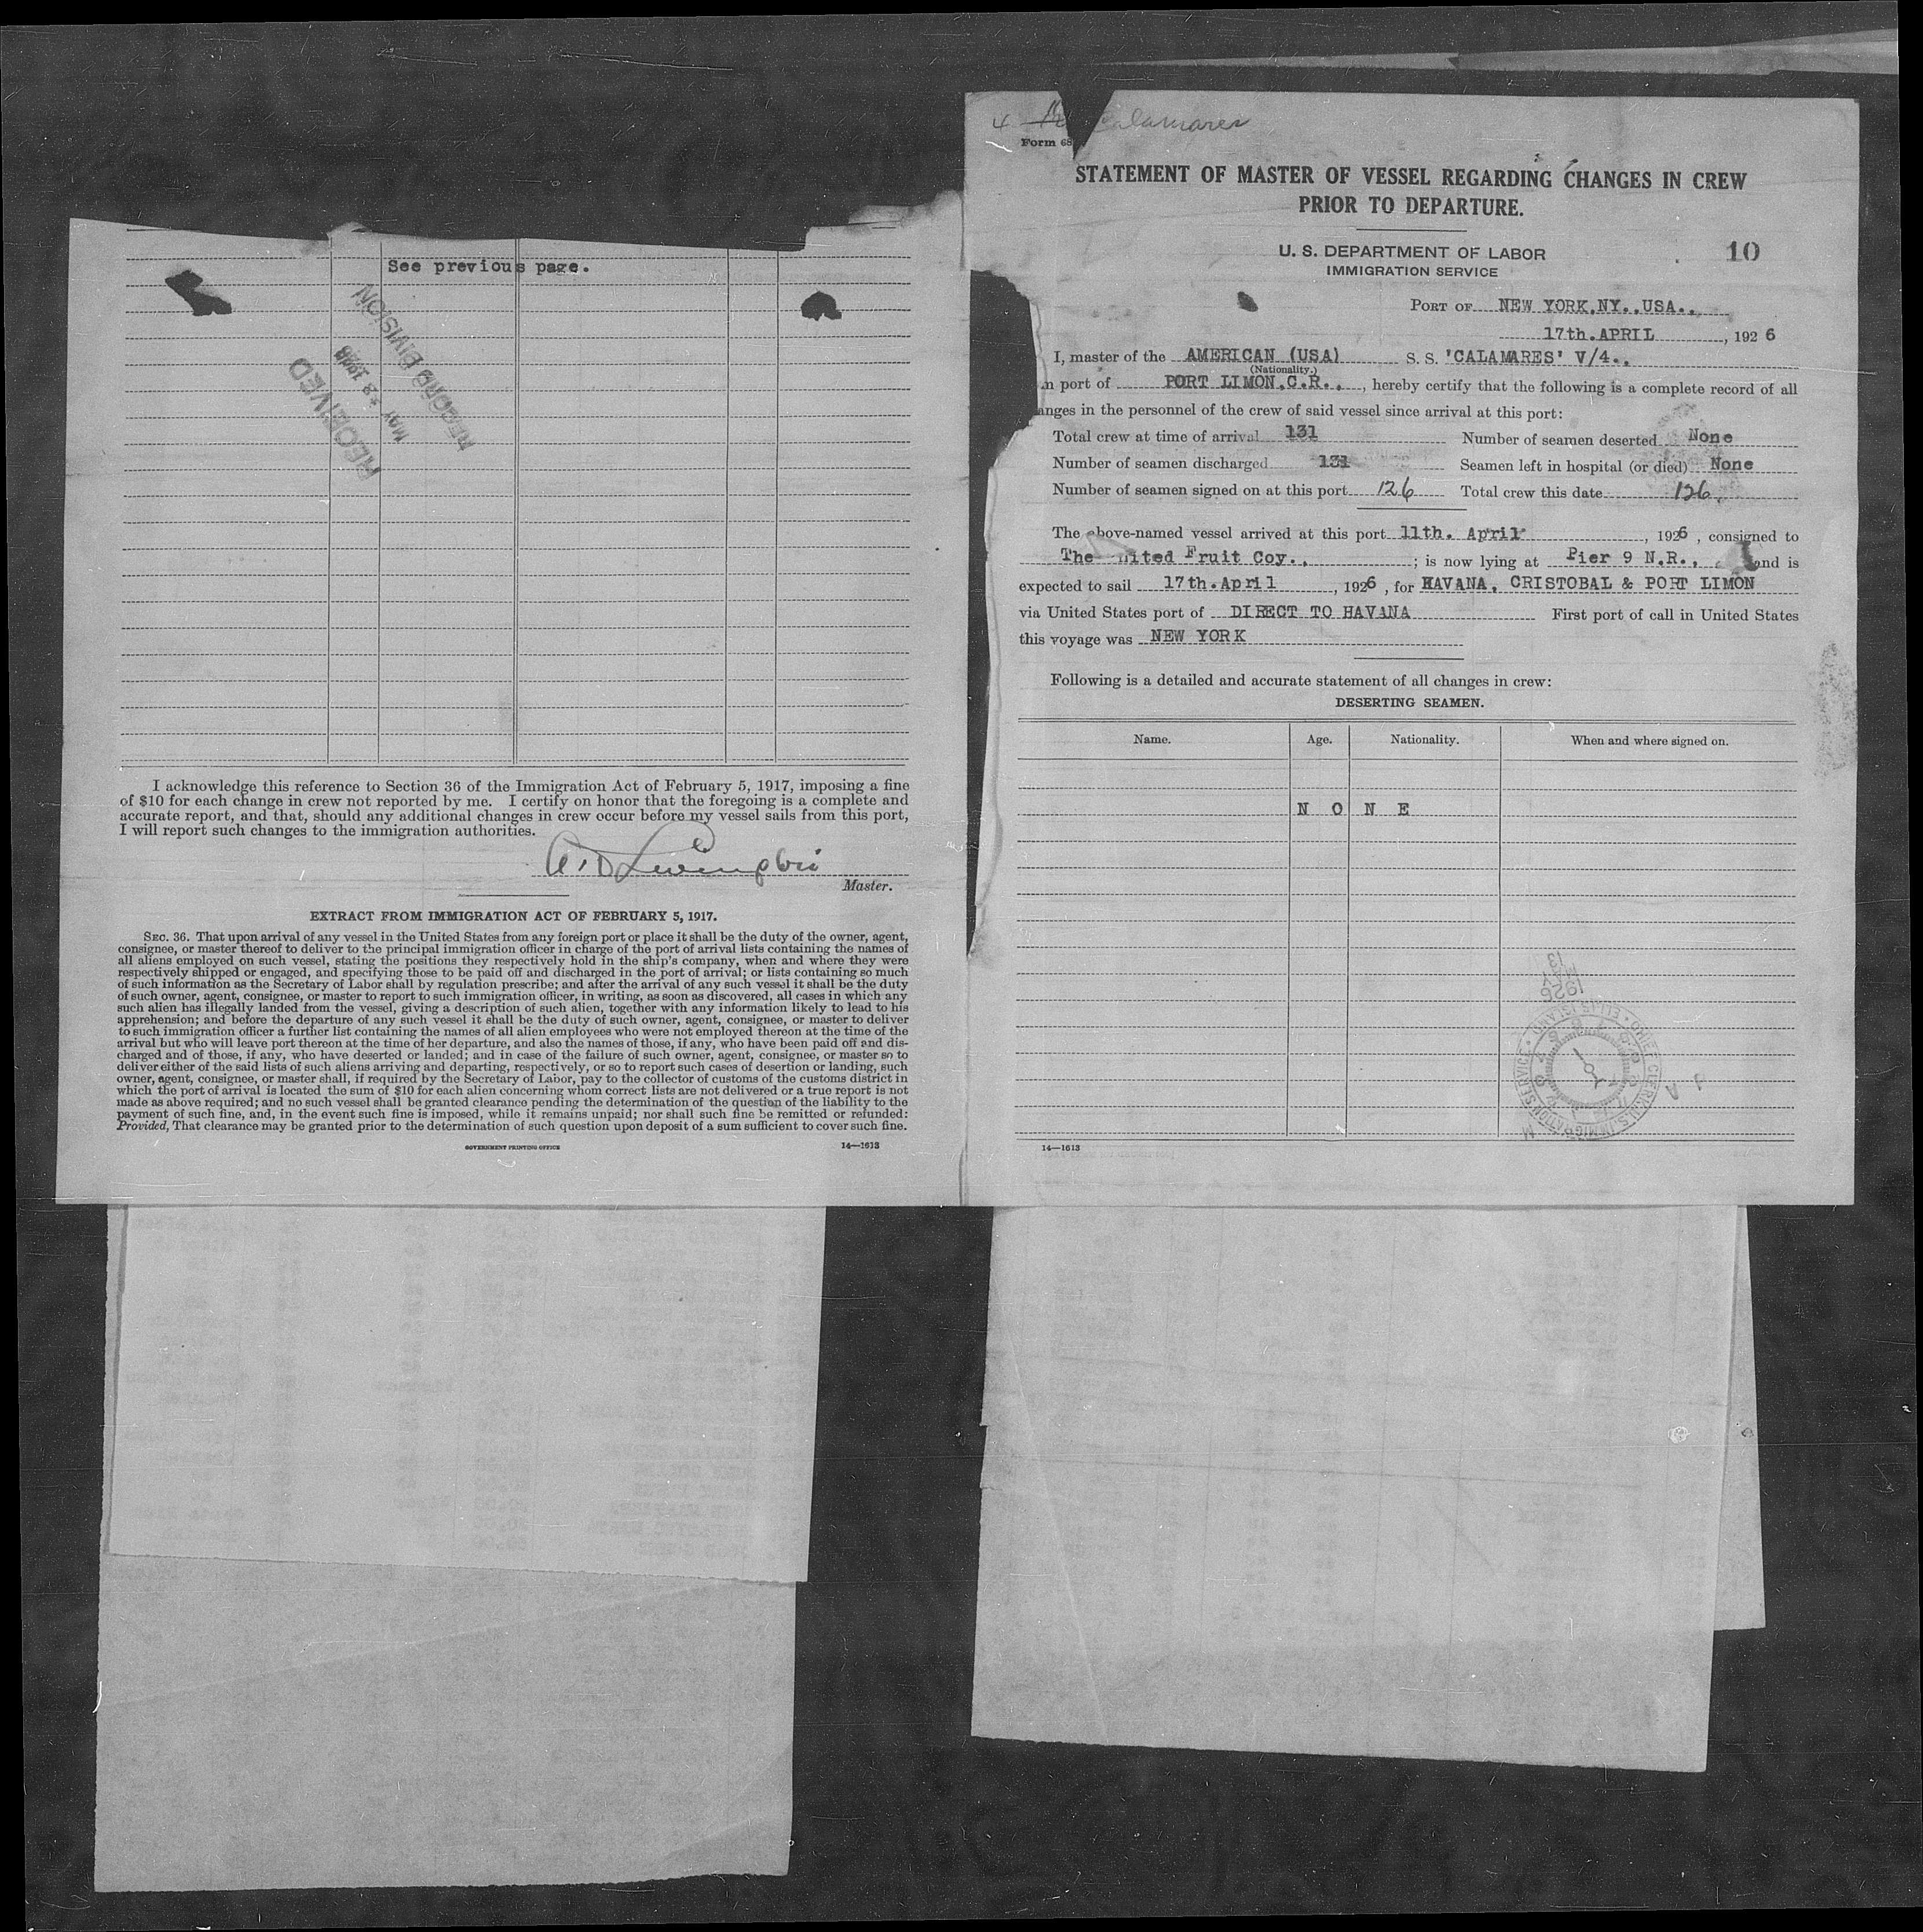 See previous page.
RECEIVED
MAY
RECORD DIVISION
I acknowledge this reference to Section 36 of the Immigration Act of February 5, 1917, imposing a fine
of $10 for each change in crew not reported by me. I certify on honor that the foregoing is a complete and
accurate report, and that, should any additional changes in crew occur before my vessel sails from this port,
I will report such changes to the immigration authorities.
Master.
EXTRACT FROM IMMIGRATION ACT OF FEBRUARY 5, 1917.
SEC. 36. That upon arrival of any vessel in the United States from any foreign port or place it shall be the duty of the owner, agent,
consignee, or master thereof to deliver to the principal immigration officer in charge of the port of arrival lists containing the names of
all aliens employed on such vessel, stating the positions they respectively hold in the ship's company, when and where they were
respectively shipped or engaged, and specifying those to be paid off and discharged in the port of arrival; or lists containing so much
of such information as the Secretary of Labor shall by regulation prescribe; and after the arrival of any such vessel it shall be the duty
of such owner, agent, consignee, or master to report to such immigration officer, in writing, as soon as discovered, all cases in which any
such alien has illegally landed from the vessel, giving a description of such alien, together with any information likely to lead to his
apprehension; and before the departure of any such vessel it shall be the duty of such owner, agent, consignee, or master to deliver
to such immigration officer a further list containing the names of all alien employees who were not employed thereon at the time of the
arrival but who will leave port thereon at the time of her departure, and also the names of those, if any, who have been paid off and dis-
charged and of those, if any, who have deserted or landed; and in case of the failure of such owner, agent, consignee, or master so to
deliver either of the said lists of such aliens arriving and departing, respectively, or so to report such cases of desertion or landing, such
owner, agent, consignee, or master shall, if required by the Secretary of Labor, pay to the collector of customs of the customs district in
which the port of arrival is located the sum of $10 for each alien concerning whom correct lists are not delivered or a true report is not
made as above required; and no such vessel shall be granted clearance pending the determination of the question of the liability to the
payment of such fine, and, in the event such fine is imposed, while it remains unpaid; nor shall such fine be remitted or refunded:
Provided, That clearance may be granted prior to the determination of such question upon deposit of a sum sufficient to cover such fine.
GOVERNMENT PRINTING OFFICE 14—1613
4 Calamares
Form 68
STATEMENT OF MASTER OF VESSEL REGARDING CHANGES IN CREW
PRIOR TO DEPARTURE.
U. S. DEPARTMENT OF LABOR
IMMIGRATION SERVICE
10
PORT OF NEW YORK,NY.,USA.,
17th.APRIL, 1926
I, master of the AMERICAN (USA) S. S. 'CALAMARES' V/4.,
(Nationality.)
m port of PORT LIMON,C.R., , hereby certify that the following is a complete record of all
anges in the personnel of the crew of said vessel since arrival at this port:
Total crew at time of arrival 131 Number of seamen deserted None
Number of seamen discharged 131 Seamen left in hospital (or died) None
Number of seamen signed on at this port 126 Total crew this date 126.
The above-named vessel arrived at this port 11th. April , 1926 , consigned to
The nited Fruit Coy., ; is now lying at Pier 9 N.R., and is
expected to sail 17th.April , 1926 , for HAVANA, CRISTOBAL & PORT LIMON
via United States port of DIRECT TO HAVANA First port of call in United States
this voyage was NEW YORK
Following is a detailed and accurate statement of all changes in crew:
DESERTING SEAMEN.
Name. Age. Nationality. When and where signed on.
N O N E
1926
CHIEF CLERK U.S. IMMIGRATION SERVICE ELLIS ISLAND
14—1613